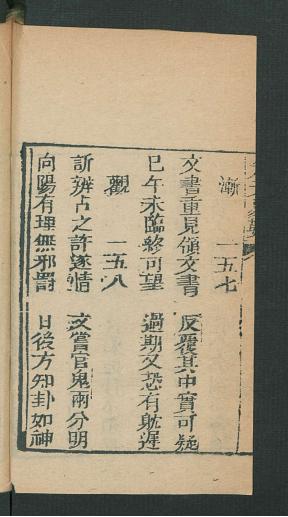 漸　一五七
文書重見領文書　反覆其中實可疑
巳午未臨終可望　過期又恐有耽遲
觀　一五八
訴辨占之許遂情　文書官鬼兩分明
向陽有理無邪罰　日後方知卦如神